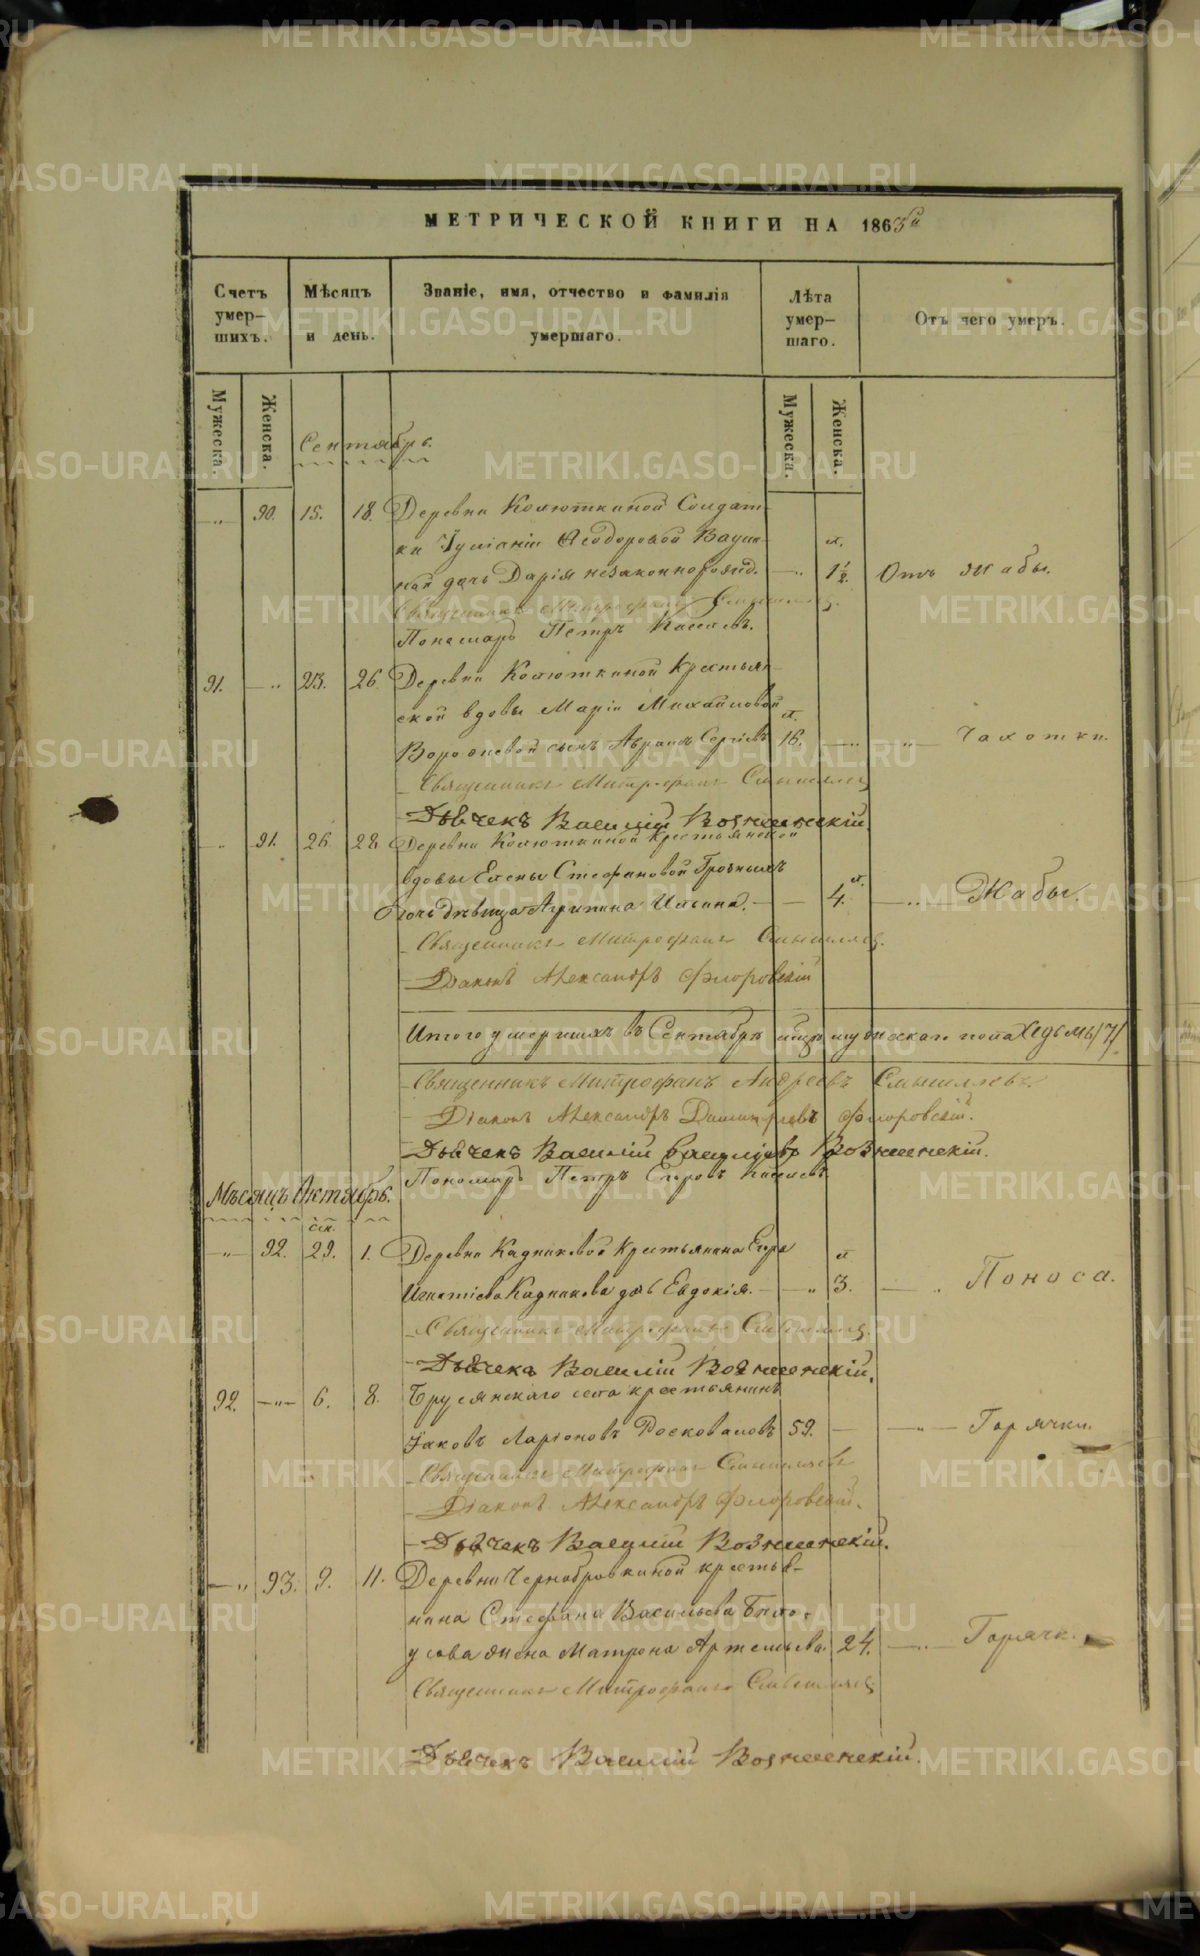 МЕТРИЧЕСКОЙ КНИГИ НА 1863й
Счетъ умер-шихъ.
Мѣсяцъ и день.
Званіе, имя, отчество и фамилія умершаго.
Лѣта умер-шаго.
Отъ чего умеръ.
Мужеска. Женска. Мужеска. Женска.
Сентябрь.
„ 90. 15. 18. Деревни Колюткиной Солдат-
ки Іуліаніи Ѳеодоровой л.
дочь Дарія незаконнорожд. — „ 1½. Отъ жабы.
Священникъ Митрофанъ Смышляевъ.
Пономарь Петръ
91. — „ 23. 26. Деревни Колюткиной Крестьян-
ской вдовы Маріи Михайловой л.
сынъ Авраамъ Сергіевъ 16. — „ — „ — Чахотки.
Священникъ Митрофанъ Смышляевъ
Дьячекъ Василій Вознесенскій.
„ 91. 26. 28. Деревни Колюткиной Крестьянской
вдовы Елены Стефановой л.
дочь дѣвица Агрипина Ильина. — — 4. — „ — Жабы.
Священникъ Митрофанъ Смышляевъ.
Діаконъ Александръ Флоровскій
Итого умершихъ въ Сентябрѣ мужеска пола /7/
Священникъ Митрофанъ Андреевъ Смышляевъ.
Діаконъ Александръ Димитріевъ Флоровскій.
Дьячекъ Василій Васильевъ Вознесенскій.
Пономарь Петръ Егоровъ
Мѣсяцъ Октябрь.
сен.
— „ 92. 29. 1. Деревни Кадниковой Крестьянина Егора л
Игнатіева Кадникова дочь Евдокія. — — „ 3. — „ Поноса.
Священникъ Митрофанъ Смышляевъ.
Дьячекъ Василій Вознесенскій.
92. — „ — 6. 8. Бруснянскаго села крестьянинъ
Іаковъ Ларіоновъ Росковаловъ 59. — — „ — Горячки.
Священникъ Митрофанъ Смышляевъ
Діаконъ Александръ Флоровскій.
Дьячекъ Василій Вознесенскій.
— „ 93. 9. 11. Деревни Чернобровкиной крестья-
нина Стефана Васильева Бѣло-
усова жена Матрона Артемьева. 24. — „ — Горячк.
Священникъ Митрофанъ Смышляевъ
Дьячекъ Василій Вознесенскій.
METRIKI.GASO-URAL.RU